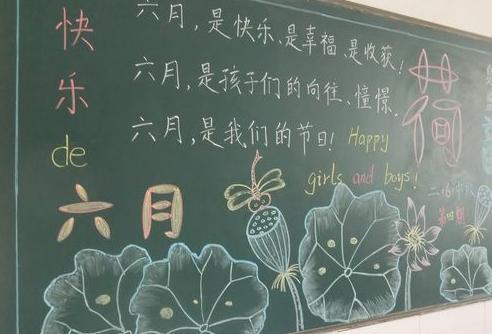 快
乐
de
六月
六月,是快乐、是幸福、是收获!
六月,是孩子们的向往、憧憬.
六月,是我们的节日! Happy
girls and boys!
荷
第四期